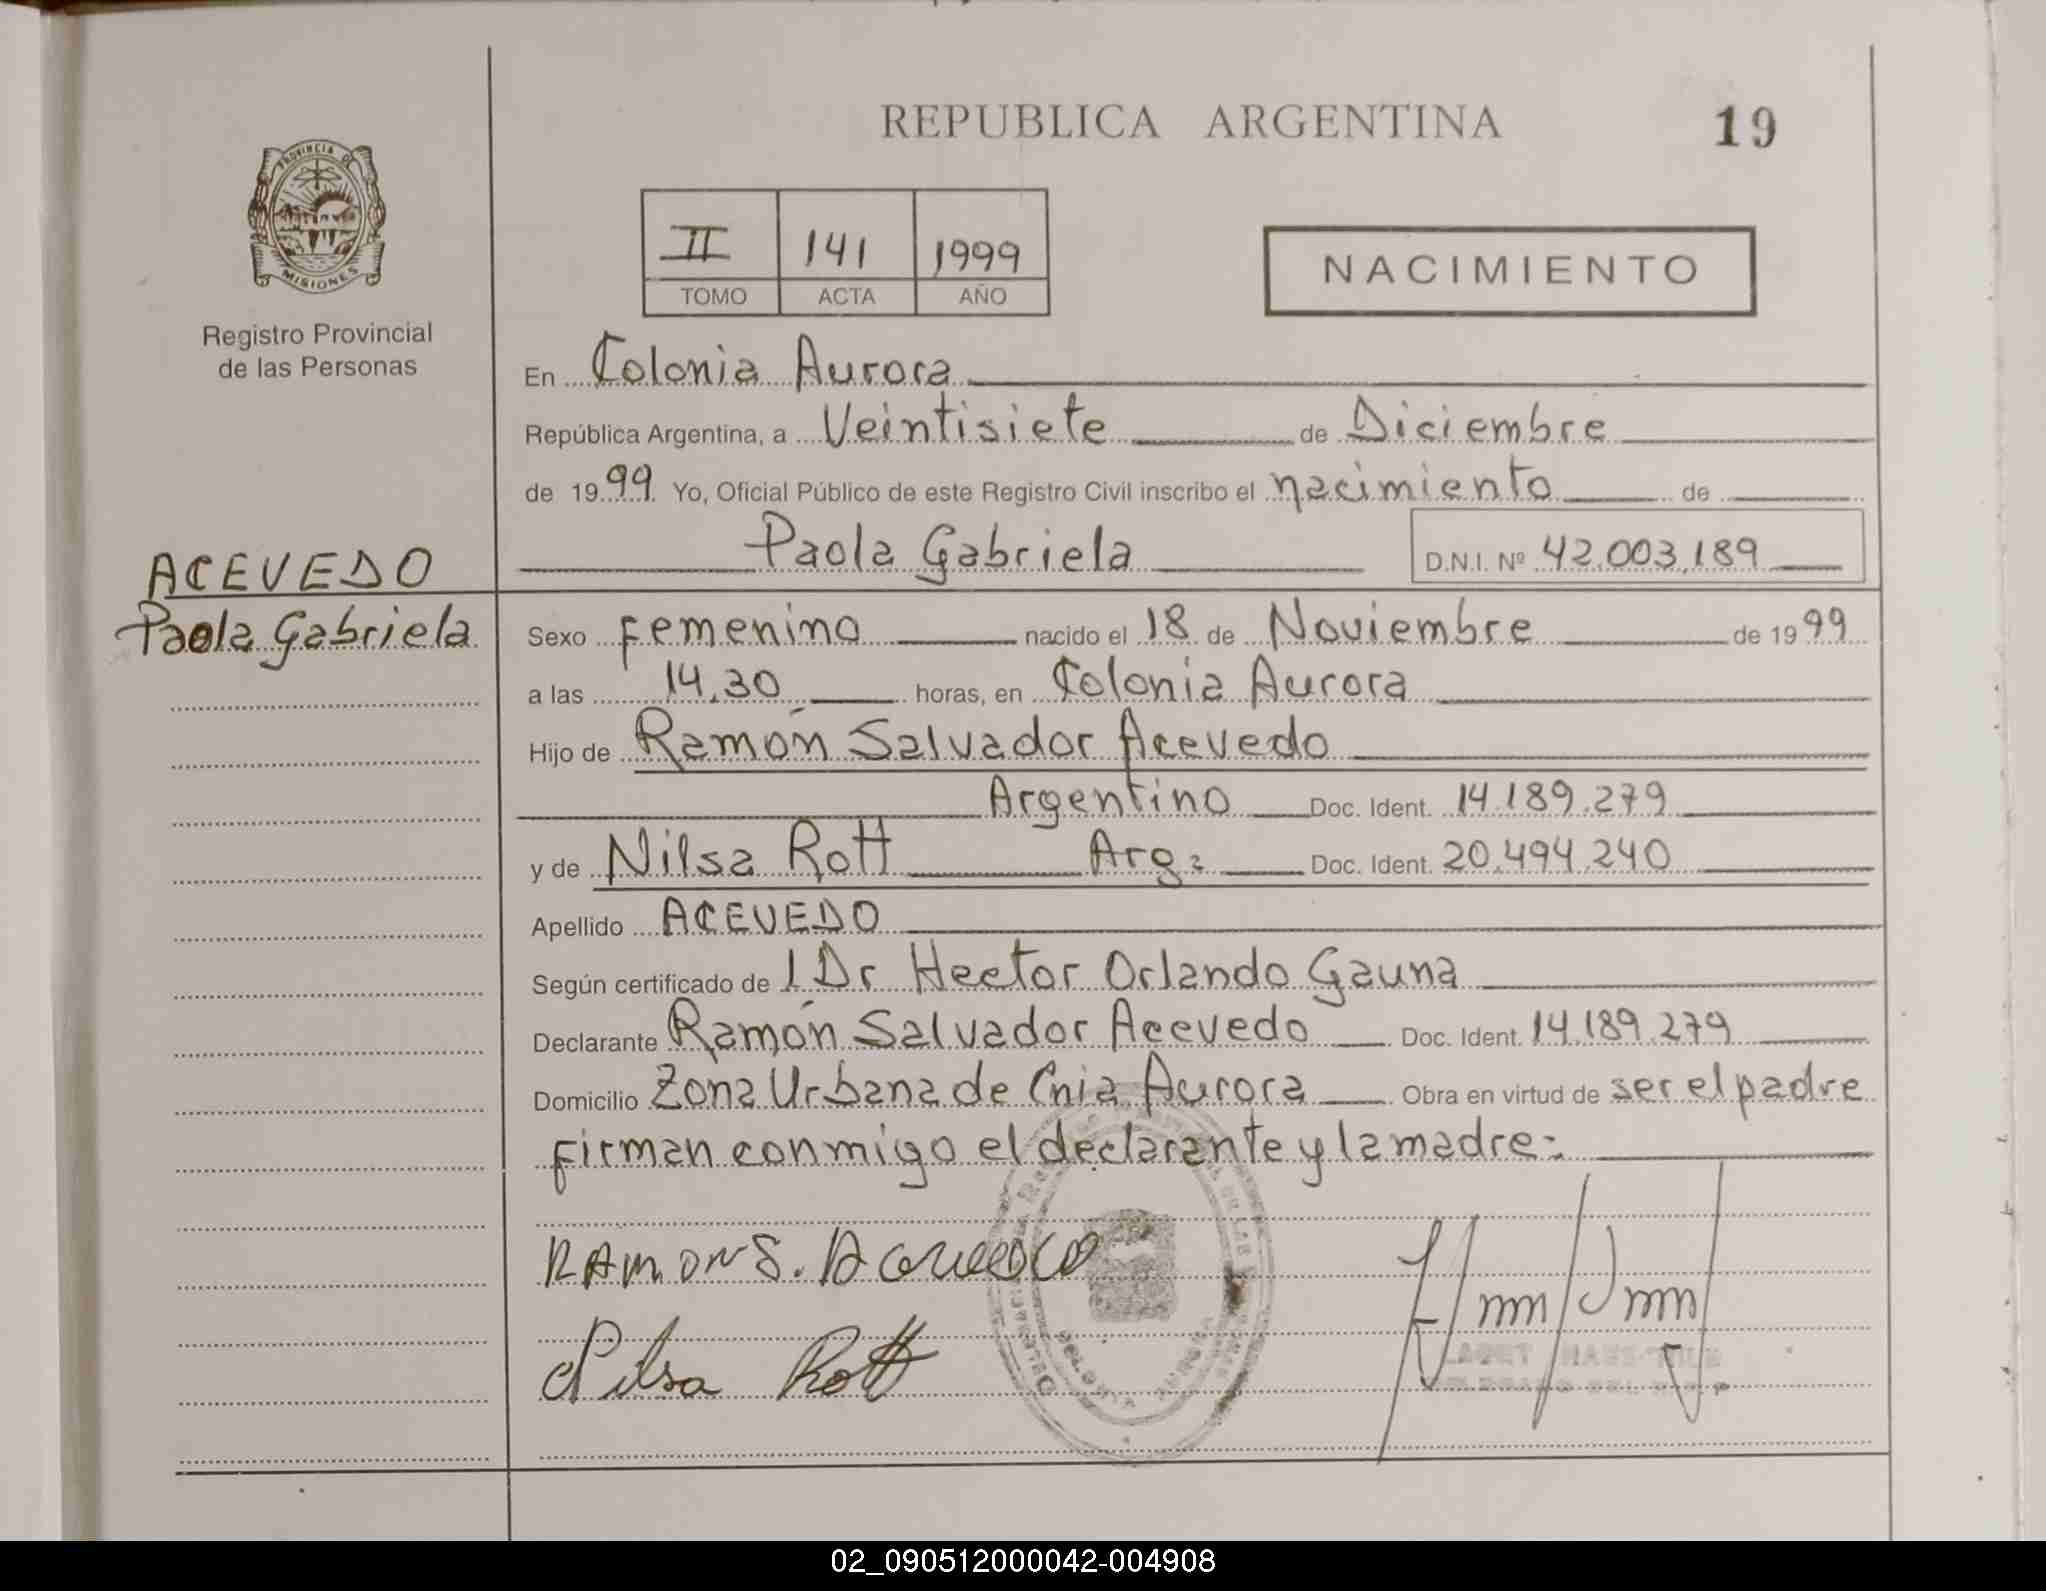 REPUBLICA ARGENTINA
19
PROVINCIA DE
MISIONES
Registro Provincial
de las Personas
II 141 1999
TOMO ACTA AÑO
NACIMIENTO
En Colonia Aurora
República Argentina, a Veintisiete de Diciembre
de 1999 Yo, Oficial Público de este Registro Civil inscribo el nacimiento de
Paola Gabriela D.N.I. Nº 42.003.189
ACEVEDO
Paola Gabriela
Sexo Femenino nacido el 18 de Noviembre de 1999
a las 14.30 horas, en Colonia Aurora
Hijo de Ramón Salvador Acevedo
Argentino Doc. Ident. 14.189.279
y de Nilsa Rott Arg: Doc. Ident. 20.494.240
Apellido ACEVEDO
Según certificado de l Dr Hector Orlando Gauna
Declarante Ramón Salvador Acevedo Doc. Ident. 14.189.279
Domicilio Zona Urbana de Cnia Aurora Obra en virtud de ser el padre
Firman conmigo el declarante y la madre:
RAMON S. Acevedo
Nilsa Rott
02_090512000042-004908